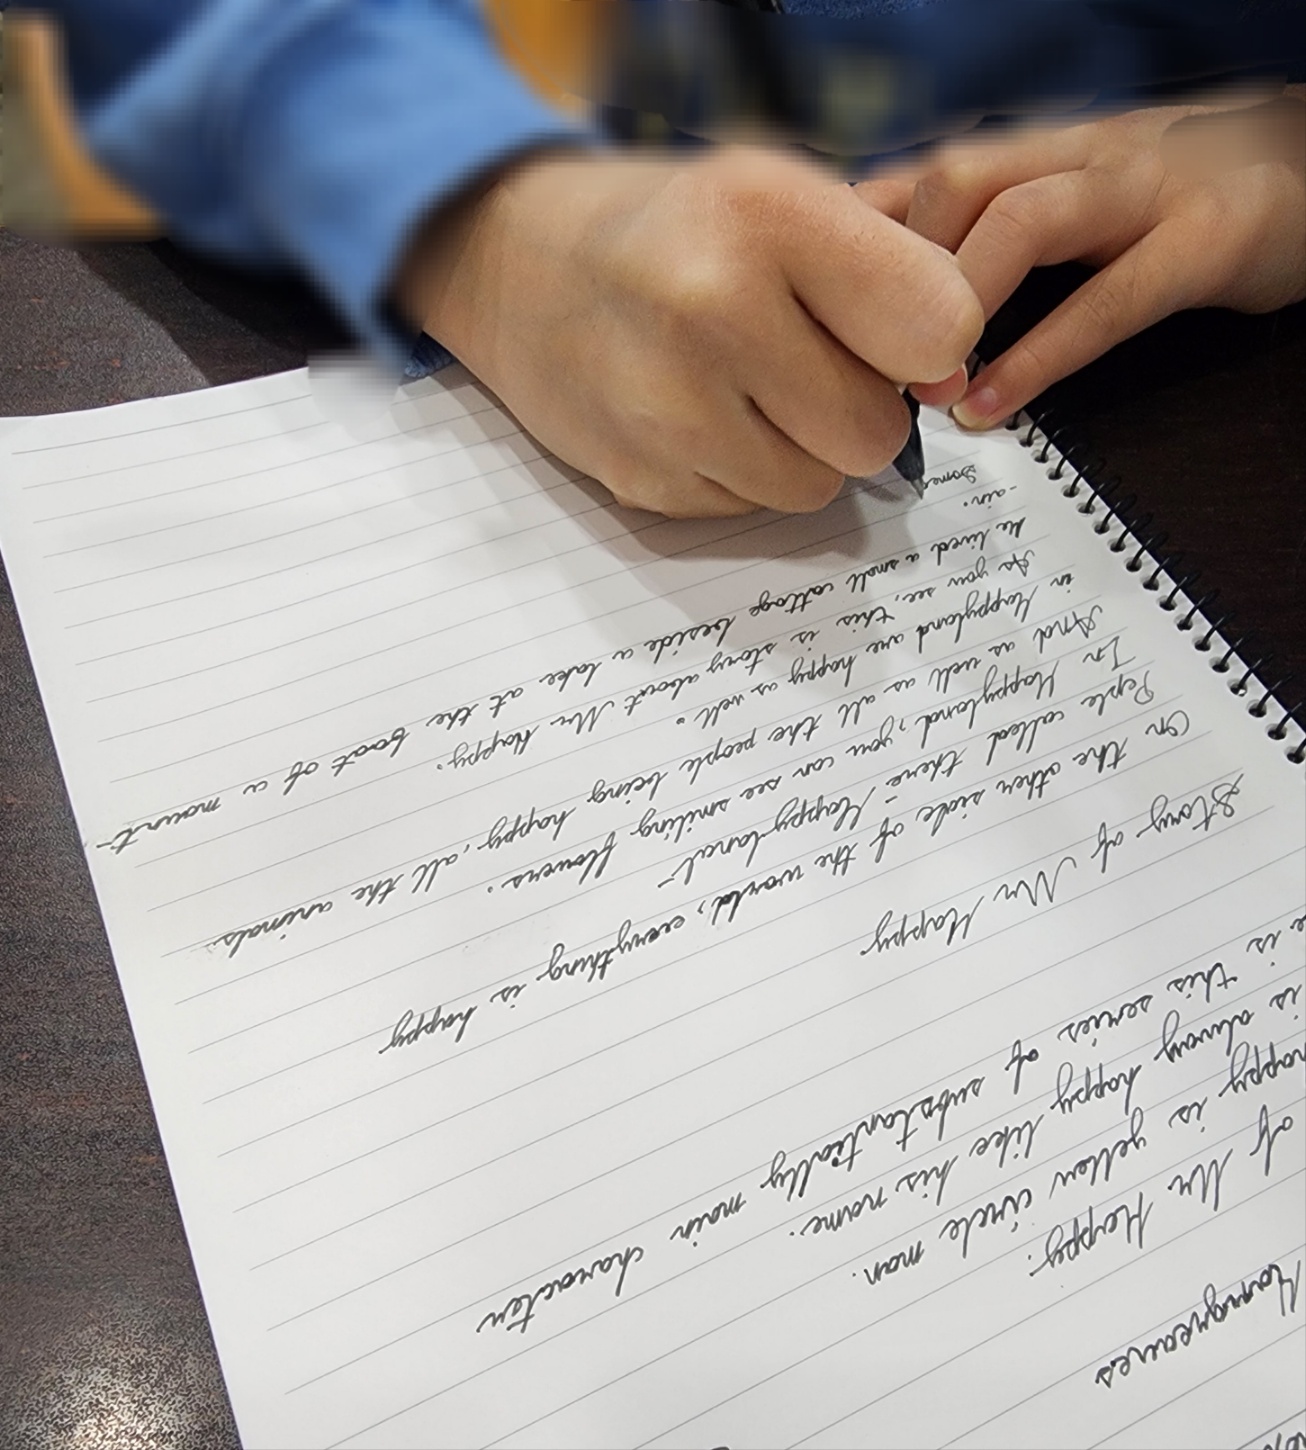 Hargreaves
of Mr. Happy.
happy is yellow circle man.
is alway happy like his name.
e is this series of substantically main character
Story of Mr. Happy
On the other side of the world, everything is happy
Peple called there - Happyland -
In Happyland, you can see smiling flowers.
And as well as all the people being happy, all the animals
in Happyland are happy as well.
As you see, this is story about Mr. Happy.
He lived a small cattage beside a lake at the foot of a mount-
-ain.
Some